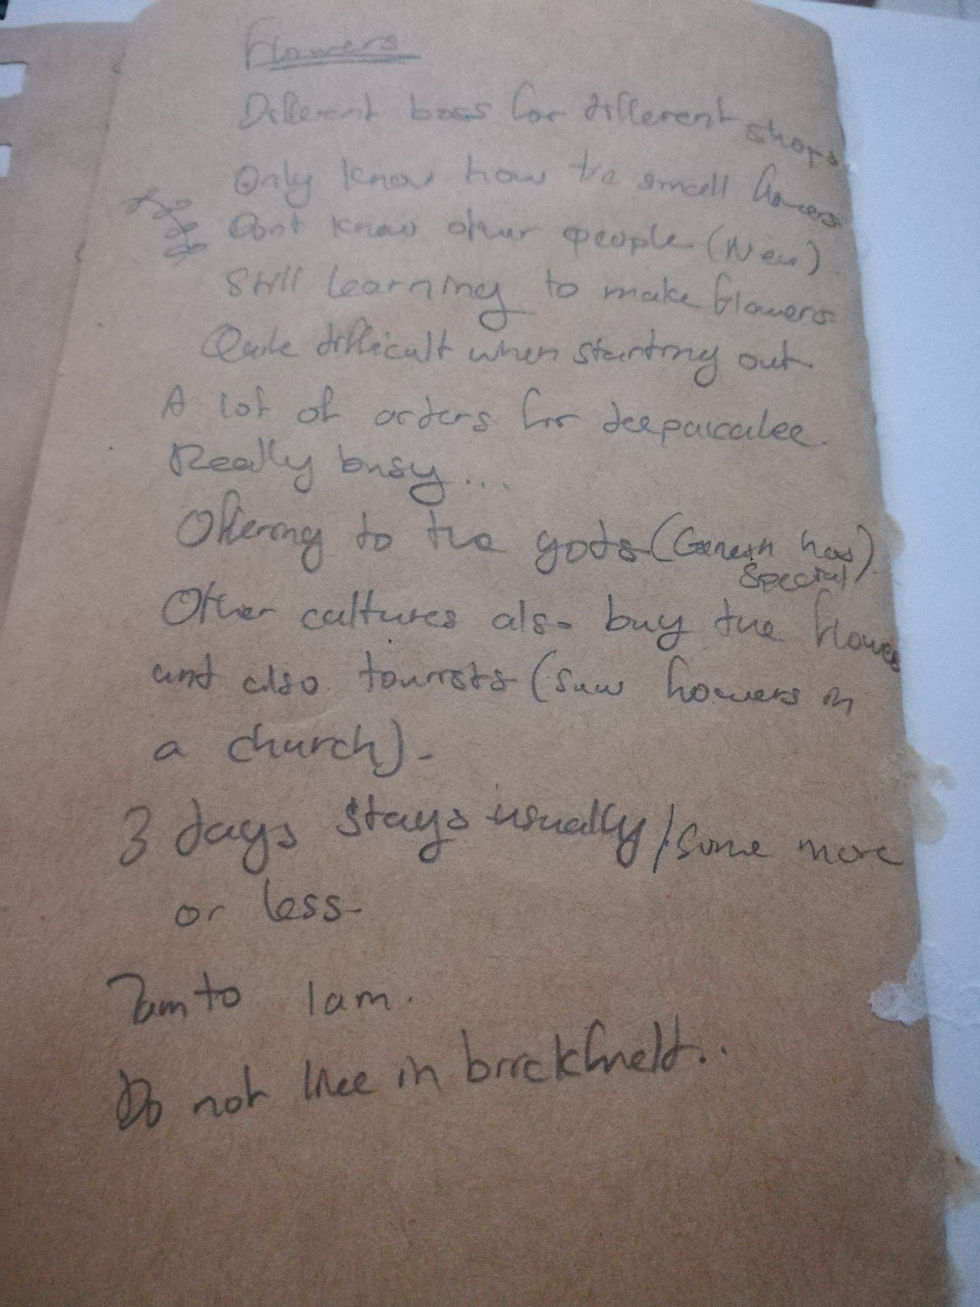 Flowers
Different boss for different shops
Only know how tie small flowers
Dont know other people (New)
Still learning to make flowers.
Quite difficult when starting out.
A lot of orders for deepavalee.
Really busy...
Offering to the gods (Ganesh has)
special
Other cultures also buy the flowers
and also tourists (saw flowers in
a church).
3 days stays usually/some more
or less.
7am to 1am.
Do not live in brickfield..